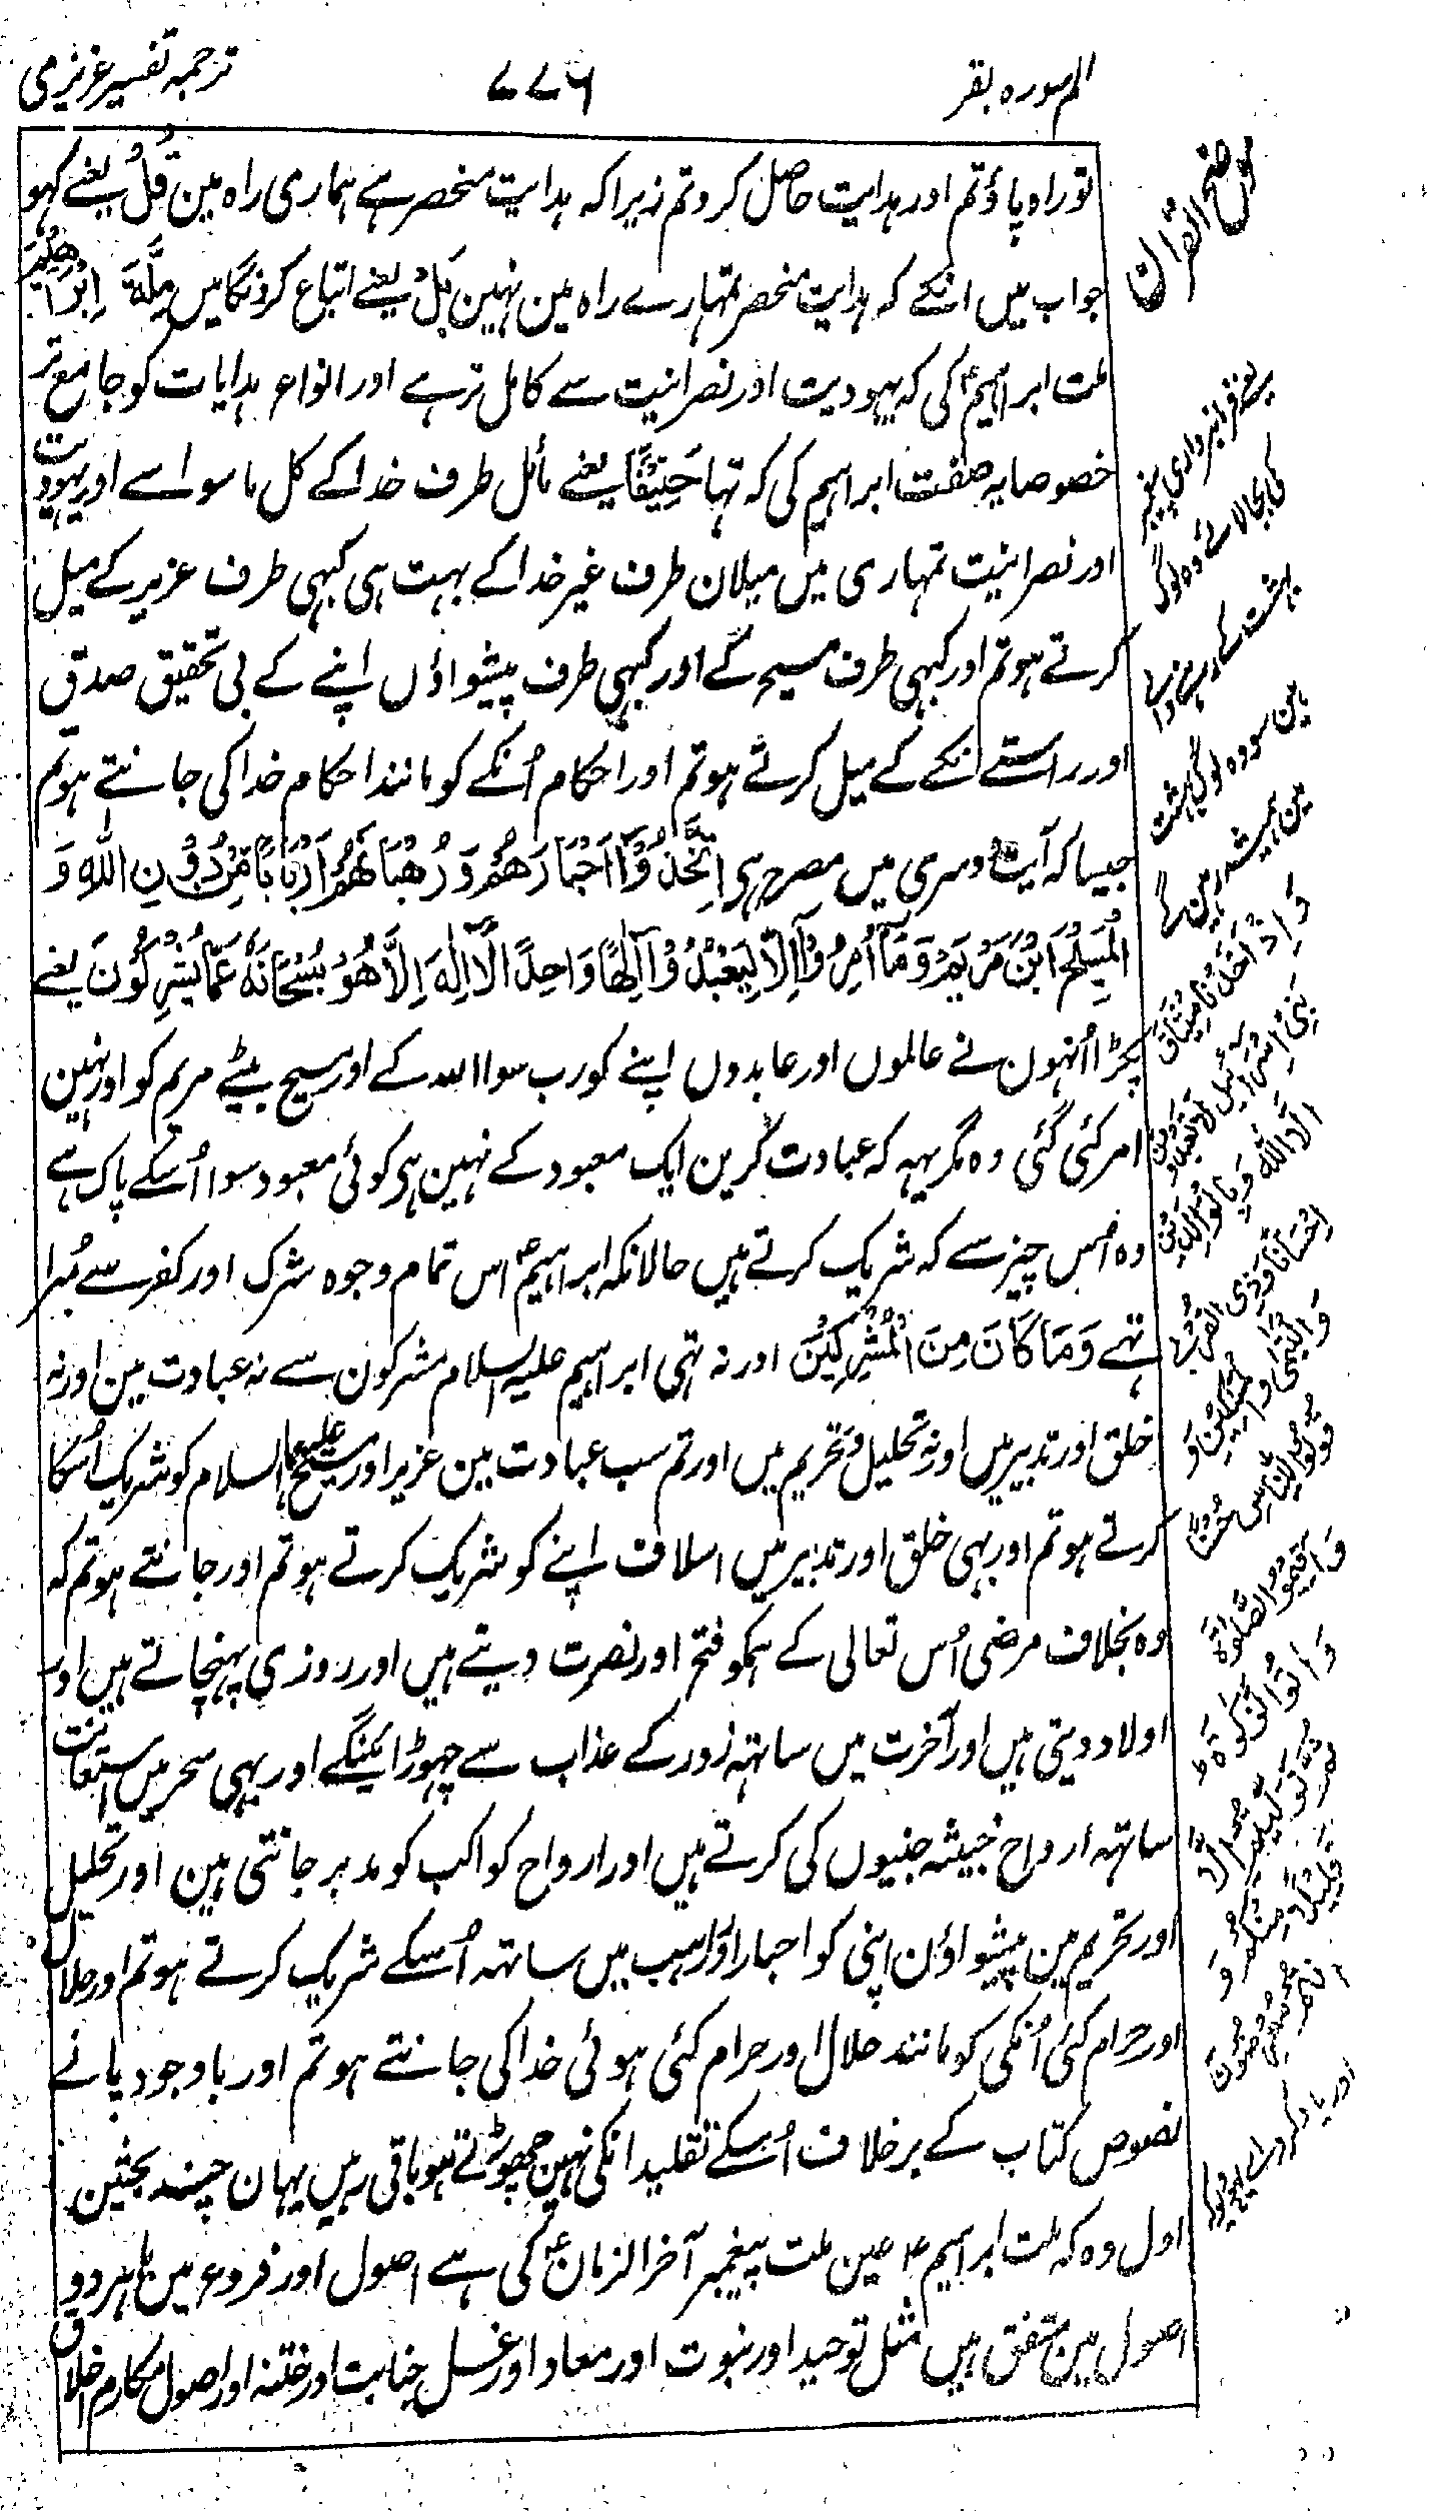 الم سورہ بقر
۷۷۶
ترجمہ تفسیر عزیزی
تو راہ پاؤ تم اور ہدایت حاصل کرو تم زیرا کہ ہدایت منحصر ہے ہماری راہ مین قُلْ یعنے کہو
جواب میں انکے کہ ہدایت منحصر تمہارے راہ مین نہین بَلْ یعنے اتباع کرونگا میں مِلَّةَ اِبْرَاهِیْمَ
ملت ابراہیم ؑ کی کہ یہودیت اور نصرانیت سے کامل تر ہے اور انواع ہدایات کو جامع تر
خصوصا یہ صفت ابراہیم کی کہ تہا حَنِیْفًا یعنے مائل طرف خدا کے کل ماسوا سے اور یہودیت
اور نصرانیت تمہاری میں میلان طرف غیر خدا کے بہت ہی کبہی طرف عزیر کے میل
کرتے ہو تم اور کبہی طرف مسیح کے اور کبہی طرف پیشواؤں اپنے کے بی تحقیق صدق
اور راستے انکے کے میل کرتے ہو تم اور احکام اُنکے کو مانند احکام خدا کی جانتے ہو تم
جیسا کہ آیت دوسری میں مصرح ہی اِتَّخَذُوْٓا اَحْبَارَهُمْ وَ رُهْبَانَهُمْ اَرْبَابًا مِّنْ دُوْنِ اللهِ وَ
الْمَسِیْحَ ابْنَ مَرْیَمَ وَمَآ اُمِرُوْٓا اِلَّا لِیَعْبُدُوْٓا اِلٰهًا وَاحِدًا لَّآ اِلٰهَ اِلَّا هُوَ سُبْحَانَهٗ عَمَّا یُشْرِكُوْنَ یعنے
پکڑا اُنہون نے عالموں اور عابدوں اپنے کو رب سوا اللہ کے اور مسیح بیٹے مریم کو اور نہین
امر کئی گئی وہ مگر یہہ کہ عبادت کرین ایک معبود کے نہین ہی کوئی معبود سوا اُسکے پاک ہے
وہ اُس چیز سے کہ شریک کرتے ہیں حالانکہ ابراہیم ؑ اس تمام وجوہ شرک اور کفر سے مُبرا
تہے وَمَا كَانَ مِنَ الْمُشْرِكِیْنَ اور نہ تہی ابراہیم علیہ السلام مشرکون سے نہ عبادت مین اور نہ
خلق اور تدبیر میں اور نہ تحلیل و تحریم میں اور تم سب عبادت مین عزیر اور مسیح علیہما السلام کو شریک اُسکا
کرتے ہو تم اور بہی خلق اور تدبیر میں اسلاف اپنے کو شریک کرتے ہو تم اور جانتے ہو تم کہ
وہ بخلاف مرضی اُس تعالی کے ہمکو فتح اور نصرت دیتے ہیں اور روزی پہنچاتے ہین اور
اولاد دیتی ہیں اور آخرت میں ساتہہ زور کے عذاب سے چہوڑائینگے اور بہی سحر میں استعانت
ساتہہ ارواح خبیثہ جنیوں کی کرتے ہیں اور ارواح کواکب کو مدبر جانتی ہین اور تحلیل
اور تحریم مین پیشواؤن اپنی کو احبار اور راہب میں ساتہہ اُسکے شریک کرتے ہو تم اور حلال
اور حرام کئی اُنکی کو مانند حلال اور حرام کئی ہوئی خدا کی جانتے ہو تم اور باوجود پانے
نصوص کتاب کے برخلاف اُسکے تقلید انکی نہین چھوڑتے ہو باقی رہیں یہان چند بحثین
اول وہ کہ ملت ابراہیم ؑ عین ملت پیغمبر آخر الزمان ؐ کی ہے اصول اور فروع مین یا ہر دو
اصول مین متفق ہیں مثل توحید اور نبوت اور معاد اور غسل جنابت اور ختنہ اور اصول مکارم اخلاق
موضح القرآن
یعنے فرمانبرداری پیغمبر
کی بجالائے وہ لوگ
بہشت کے رہنے والے
ہین سو وہ لوگ بہشت
مین ہمیشہ رہین گے
وَاِذْ اَخَذْنَا مِیْثَاقَ
بَنِیْٓ اِسْرَآءِیْلَ لَا تَعْبُدُوْنَ
اِلَّا اللهَ وَبِالْوَالِدَیْنِ
اِحْسَانًا وَّذِی الْقُرْبٰی
وَالْیَتٰمٰی وَالْمَسٰكِیْنِ وَ
قُوْلُوْا لِلنَّاسِ حُسْنًا
وَّاَقِیْمُوا الصَّلٰوةَ
وَاٰتُوا الزَّكٰوةَ ط
ثُمَّ تَوَلَّیْتُمْ اِلَّا
قَلِیْلًا مِّنْكُمْ وَ
اَنْتُمْ مُّعْرِضُوْنَ
اور یاد کرو اے یہودیو